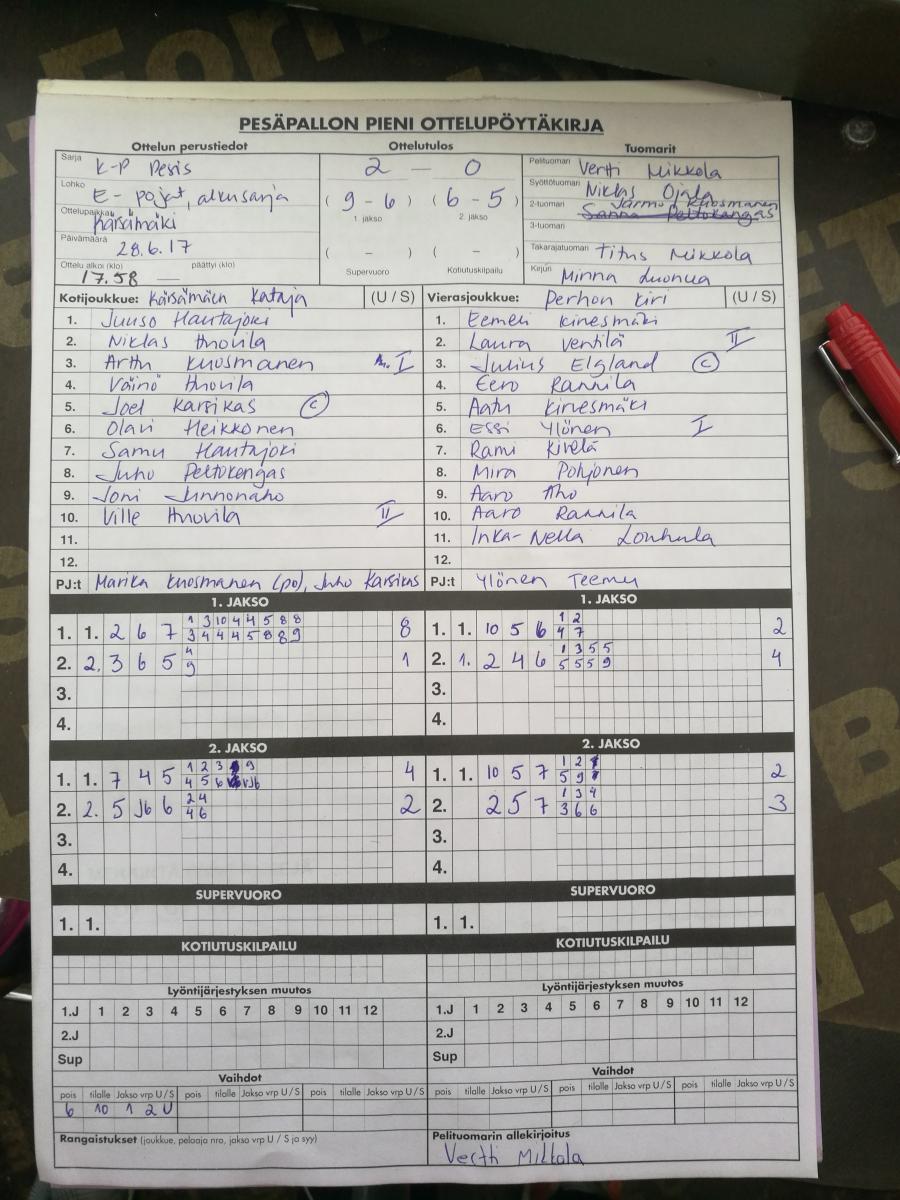 PESÄPALLON PIENI OTTELUPÖYTÄKIRJA
Ottelun perustiedot Ottelutulos Tuomarit
Sarja K-P Pesis 2 — 0 Pelituomari Vertti Mikkola
Lohko E-pojat, alkusarja (9-6) (6-5) Syöttötuomari Niklas Ojala
1. jakso 2. jakso 2-tuomari Jarmo Kuosmanen
Ottelupaikka Kärsämäki 3-tuomari
Päivämäärä 28.6.17 ( - ) ( - ) Takarajatuomari Titus Mikkola
Ottelu alkoi (klo) 17.58 — päättyi (klo) Supervuoro Kotiutuskilpailu Kirjuri Minna Luonua
Kotijoukkue: Kärsämäen Kataja (U / S) Vierasjoukkue: Perhon Kiri (U / S)
1. Juuso Hautajoki 1. Eemeli Kinesmäki
2. Niklas Ahovila 2. Laura Ventilä II
3. Arttu Kuosmanen I 3. Julius Elgland C
4. Väinö Ahovila 4. Eero Rannila
5. Joel Karsikas C 5. Aatu Kinesmäki
6. Olavi Heikkonen 6. Essi Ylönen I
7. Samu Hautajoki 7. Rami Kivelä
8. Juho Peltokangas 8. Mira Pohjonen
9. Joni Junnonaho 9. Aaro Aho
10. Ville Ahovila II 10. Aaro Rannila
11. 11. Inka-Nella Louhula
12. 12.
PJ:t Marika Kuosmanen (po), Juho Karsikas PJ:t Ylönen Teemu
1. JAKSO 1. JAKSO
1 3 10 4 4 5 8 8 1 2
1. 1. 2 6 7 3 4 4 4 4 5 8 8 9 8 1. 1. 10 5 6 4 7 2
4 1 3 5 5
2. 2. 3 6 5 9 1 2. 1. 2 4 6 5 5 5 9 4
3. 3.
4. 4.
2. JAKSO 2. JAKSO
1 2 3 9 1 2
1. 1. 7 4 5 4 5 6 4 1. 1. 10 5 7 5 9 2
2 4 1 3 4
2. 2. 5 J6 6 4 6 2 2. 2 5 7 3 6 6 3
3. 3.
4. 4.
SUPERVUORO SUPERVUORO
1. 1. 1. 1.
KOTIUTUSKILPAILU KOTIUTUSKILPAILU
Lyöntijärjestyksen muutos Lyöntijärjestyksen muutos
1.J 1 2 3 4 5 6 7 8 9 10 11 12 1.J 1 2 3 4 5 6 7 8 9 10 11 12
2.J 2.J
Sup Sup
Vaihdot Vaihdot
pois tilalle Jakso vrp U / S pois tilalle Jakso vrp U / S pois tilalle Jakso vrp U / S pois tilalle Jakso vrp U / S pois tilalle Jakso vrp U / S pois tilalle Jakso vrp U / S
6 10 1 2 U
Rangaistukset (joukkue, pelaaja nro, jakso vrp U / S ja syy) Pelituomarin allekirjoitus
Vertti Mikkola